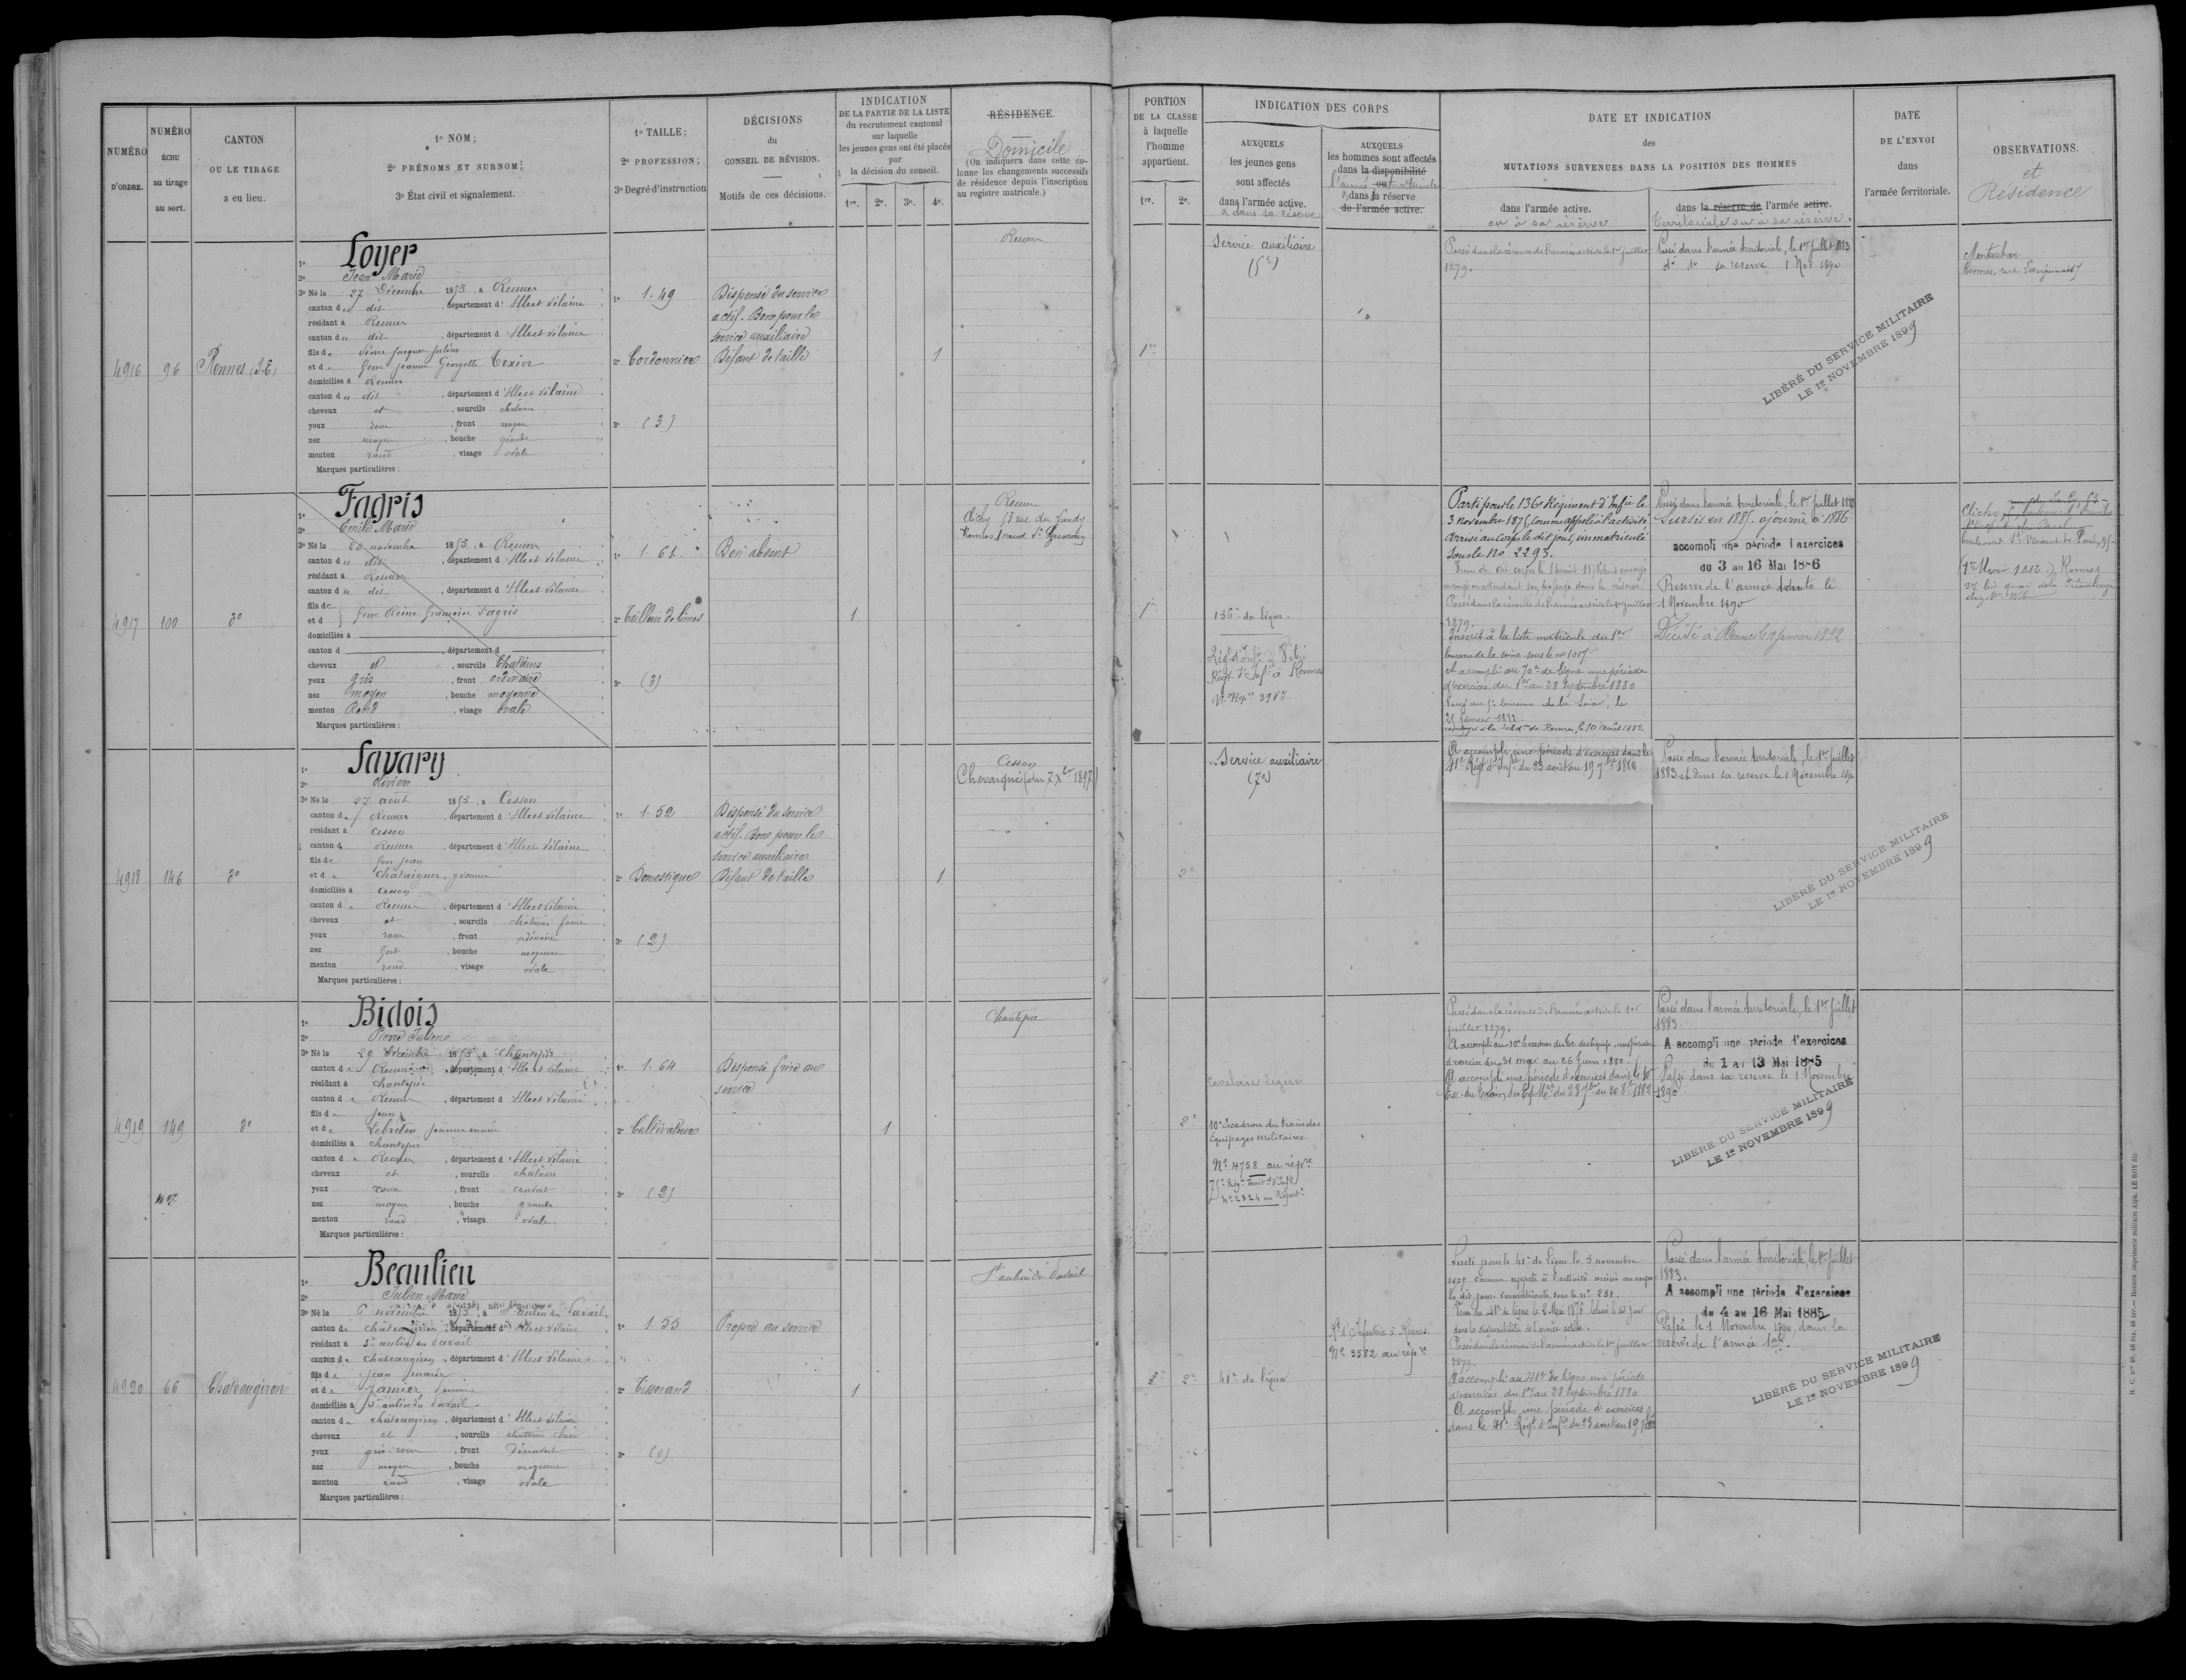 NUMÉRO D'ORDRE.
NUMÉRO ÉCHU au tirage au sort.
CANTON OU LE TIRAGE a eu lieu.
1º NOM;
2º PRÉNOMS ET SURNOM;
3º État civil et signalement.
1º TAILLE;
2º PROFESSION;
3º Degré d'instruction
DÉCISIONS
du
CONSEIL DE RÉVISION.
Motifs de ces décisions.
INDICATION
DE LA PARTIE DE LA LISTE
du recrutement cantonal
sur laquelle
les jeunes gens ont été placés
par
la décision du conseil.
1re. 2e. 3e. 4e.
RÉSIDENCE.
Domicile
(On indiquera dans cette colonne les changements successifs de résidence depuis l'inscription au registre matricule.)
PORTION
DE LA CLASSE
à laquelle
l'homme
appartient.
1re. 2e.
INDICATION DES CORPS
AUXQUELS
les jeunes gens
sont affectés
dans l'armée active.
& dans sa réserve
AUXQUELS
les hommes sont affectés
dans la disponibilité
l'armée ou territoriale
dans sa réserve
de l'armée active.
DATE ET INDICATION
des
MUTATIONS SURVENUES DANS LA POSITION DES HOMMES
dans l'armée active.
ou à sa réserve
dans la réserve de l'armée active.
Territoriale ou à sa réserve.
DATE
DE L'ENVOI
dans
l'armée territoriale.
OBSERVATIONS.
et
Résidence
4916
96
Rennes (S.E)
1º Loyer
2º Jean Marie
3º Né le 27 Décembre 1853, à Rennes
canton du dit, département d'Ille et Vilaine
résidant à Rennes
canton du dit, département d'Ille et Vilaine
fils de
et de Georgette Texier
domiciliés à Rennes
canton du dit, département d'Ille et Vilaine
cheveux et, sourcils chatains
yeux roux, front moyen
nez moyen, bouche grande
menton rond, visage ovale
Marques particulières:
1º 1.49
2º Cordonnier
3º (3)
Dispensé du service
actif. Bon pour le
service auxiliaire
Défaut de taille
1
Rennes
1re
Service auxiliaire
(5e)
Passé dans la réserve de l'armée active le 1er juillet
1879.
Passé dans l'armée territoriale, le 1er juillet 1883
do do sa reserve 1 Nov. 1890
LIBÉRÉ DU SERVICE MILITAIRE
LE 1er NOVEMBRE 1899
Montauban
Rennes, rue
4917
100
do
1º Fagris
2º Emile Marie
3º Né le 20 novembre 1853, à Rennes
canton du dit, département d'Ille et Vilaine
résidant à Rennes
canton du dit, département d'Ille et Vilaine
fils de
et d feue Reine Françoise Fagris
domiciliés à
canton d, département d
cheveux et, sourcils Chatains
yeux gris, front ordinaire
nez moyen, bouche moyenne
menton Rond, visage ovale
Marques particulières:
1º 1.61
2º Tailleur de limes
3º (3)
Bon absent
1
Rennes
Clichy 53 rue du Landy
Rennes
1re
136e de ligne.
Régt d'Infie à Vitré
Régt d'Infie à Rennes
No Répre 3987
Parti pour le 136e Régiment d'Infie le
3 novembre 1875, comme appelé à l'activité
Arrivé au Corps le dit jour, immatriculé
sous le No 2293.
Passé dans la réserve de l'armée active le 1er juillet
1879.
Inscrit à la liste matricule du 1er
bureau de la Seine sous le no 1017
A accompli au 70e de ligne une période
d'exercices du 1er au 28 Septembre 1880
Passé au 5e bureau de la Seine, le
Passé dans l'armée territoriale, le 1er juillet 1883
Sursis en 1885, ajourné à 1886
accompli une période d'exercices
du 3 au 16 Mai 1886
Reserve de l'armée territ le
1 Novembre 1890
Décédé à Rennes le 9 Janvier 1892
Clichy
boulevard St Vincent de Paul, 95
Rennes
4918
146
do
1º Savary
2º
3º Né le 27 août 1853, à Cesson
canton de Rennes, département d'Ille et Vilaine
résidant à Cesson
canton de Rennes, département d'Ille et Vilaine
fils de feu Jean
et de Chataigner,
domiciliés à Cesson
canton de Rennes, département d'Ille et Vilaine
cheveux et, sourcils chatains foncé
yeux roux, front ordinaire
nez fort, bouche moyenne
menton rond, visage ovale
Marques particulières:
1º 1.52
2º Domestique
3º (2)
Dispensé du service
actif. Bon pour le
service auxiliaire
Défaut de taille
1
Cesson
Chevaigné (du 7 Xbre 1897)
2e
Service auxiliaire
(7e)
A accompli une période d'exercices dans le
41e Régt d'Infie du 23 août au 19 7bre 1880
Passé dans l'armée territoriale, le 1er juillet
1883 et dans sa reserve le 1 Novembre 1890
LIBÉRÉ DU SERVICE MILITAIRE
LE 1er NOVEMBRE 1899
4919
149
do
1º Bidois
2º Pierre Julien
3º Né le 29 Décembre 1853, à Chantepie
canton de Rennes, département d'Ille et Vilaine
résidant à Chantepie
canton de Rennes, département d'Ille et Vilaine
fils de Jean
et de Lebreton Jeanne Marie
domiciliés à Chantepie
canton de Rennes, département d'Ille et Vilaine
cheveux et, sourcils chatains
yeux roux, front couvert
nez moyen, bouche grande
menton rond, visage ovale.
Marques particulières:
1º 1.64
2º Cultivateur
3º (2)
Dispensé frère au
service
1
Chantepie
2e
Cavalerie légère
10e Escadron du train des
Equipages Militaires.
No 4758 au répre
75e Régt Territ d'Infie
No 2324 au Répert
Passé dans la réserve de l'armée active le 1er
juillet 1879.
A accompli au 10e Escadron du Tr. des Equip. une période
d'exercice du 31 mai au 26 Juin 1880.
A accompli une période d'exercices dans le 10e
Esc. du train des Eq. Mres du 23 7bre au 20 8bre 1882
Passé dans l'armée territoriale, le 1er juillet
1883.
A accompli une période d'exercices
du 1 au 13 Mai 1885
Passé dans sa reserve le 1 Novembre
1890
LIBÉRÉ DU SERVICE MILITAIRE
LE 1er NOVEMBRE 1899
4920
66
Chateaugiron
1º Beaulieu
2º Julien Marie
3º Né le novembre 1853, à St aubin du Pavail
canton de châteaugiron, département d'Ille et Vilaine
résidant à St aubin du Pavail
canton de Chateaugiron, département d'Ille et Vilaine
fils de Jean Marie
et de Jamier,
domiciliés à St aubin du Pavail
canton de chateaugiron, département d'Ille et Vilaine
cheveux et, sourcils chatain clair
yeux gris-roux, front découvert
nez moyen, bouche moyenne
menton rond, visage ovale
Marques particulières:
1º 1.55
2º Tisserand
3º (0)
Propre au service
1
St aubin du Pavail
2e
41e de ligne
Rt d'Infanterie à Rennes.
No 3582 au répre
Parti pour le 41e de Ligne le 3 novembre
1875 comme appelé à l'activité arrivé au corps
le dit jour immatriculé sous le no 231.
dans la disponibilité de l'armée active.
Passé dans la réserve de l'armée active le 1er juillet
1879.
A accompli au 41e de ligne une période
d'exercices du 1er au 28 Septembre 1880
A accompli une période d'exercices
dans le 41e Régt d'Infie du 23 août au 19 7bre
Passé dans l'armée territoriale, le 1er juillet
1883.
A accompli une période d'exercices
du 4 au 16 Mai 1885
Passé le 1 Novembre 1890, dans la
reserve de l'armée Tale.
LIBÉRÉ DU SERVICE MILITAIRE
LE 1er NOVEMBRE 1899